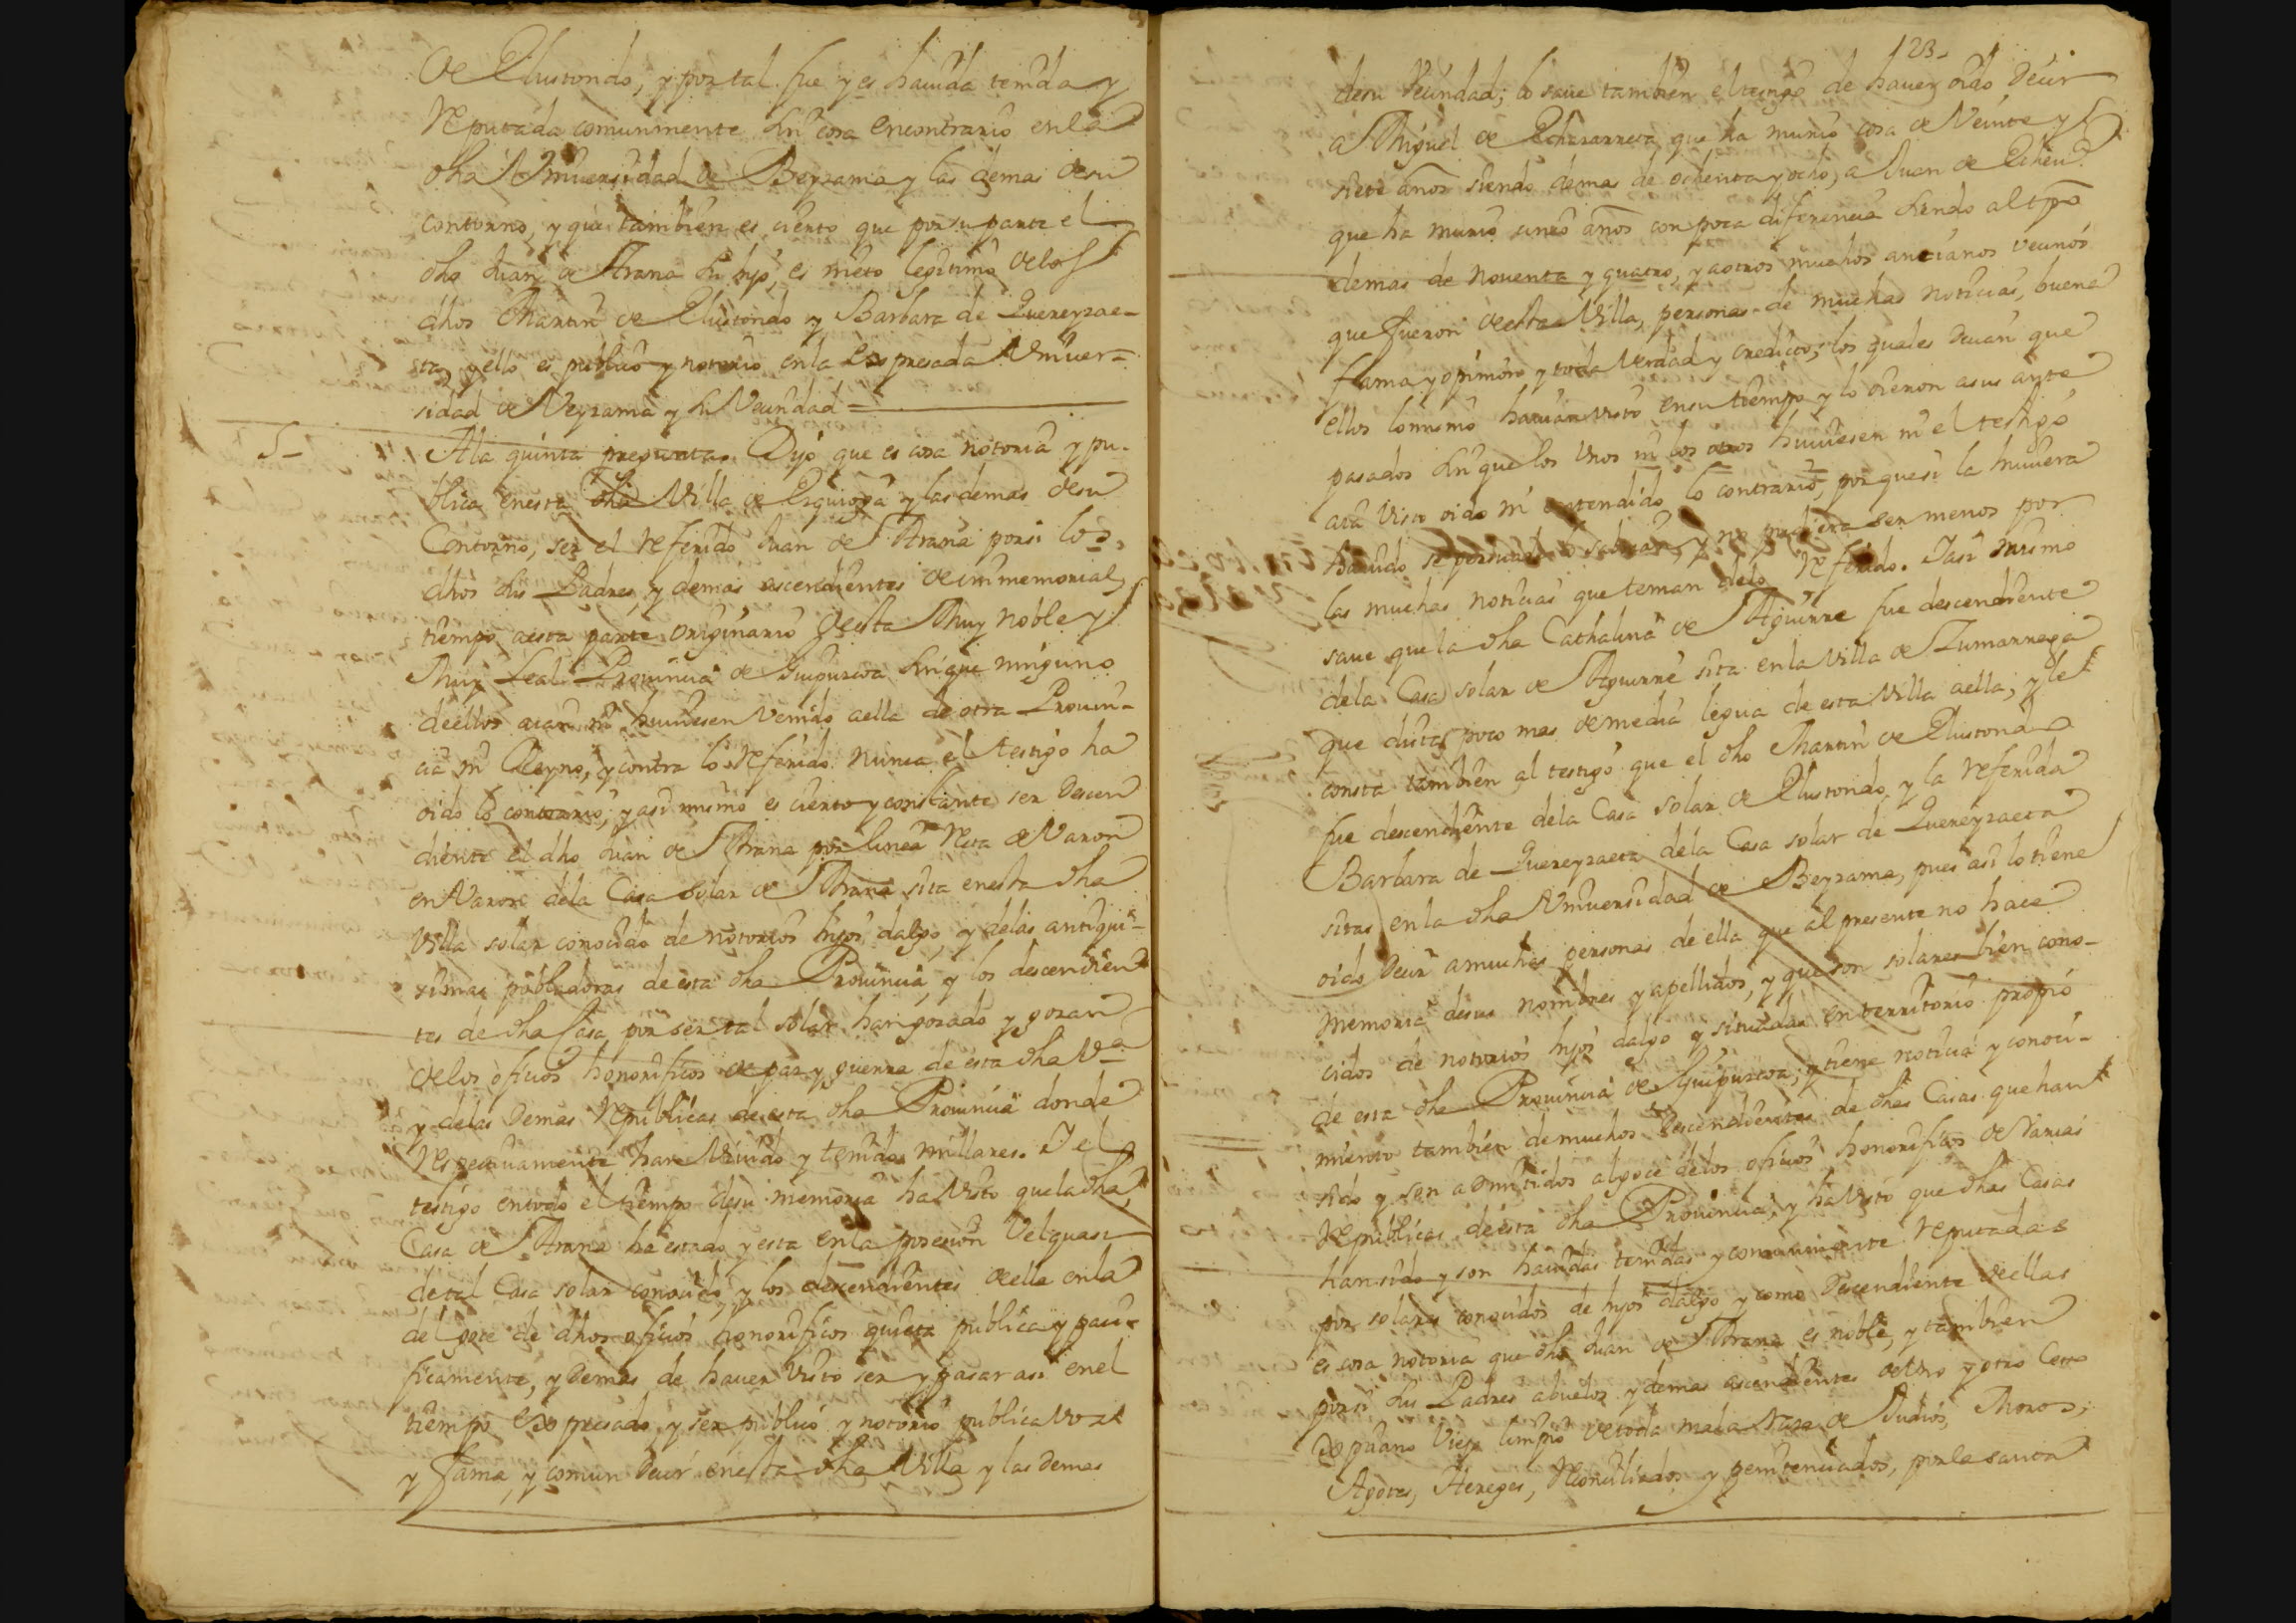 de Elustondo, y por tal fue y es hauida tenida y
Reputada comunmente sin cosa encontrario en la
dha Vniuersidad de Beyzama y las demas de su
contorno, y que tambien es cierto que por su parte el
dho Juan de Arana su hijo, es nieto legitimo de los
dhos Martin de Elustondo y Barbara de Quereyzae-
ta, y ello es publico y notorio en la expresada Vniuer-
sidad de Veyzama y su Vecindad =
5- A la quinta pregunta Dijo que es cosa notoria y pu-
blica en esta dha Villa de Ezquioga y las demas de su
Contorno, ser el referido Juan de Arana por si los
dhos sus Padres, y demas ascendientes de inmemorial
tiempo aesta parte originario de esta Muy Noble y
Muy Leal Prouincia de Guipuzcoa sin que ninguno
de ellos aian ni huuiesen venido a ella de otra Prouin-
cia ni Reyno, y contra lo referido nunca el testigo ha
oido lo contrario; y asi mismo es cierto y constante ser Descen
diente el dho Juan de Arana por linea Recta de Varon
en Varon dela Casa solar de Arana sita en esta dha
Villa solar conocido de notorios hijos dalgo, y delas antiqui-
simas pobladoras de esta dha Prouincia, y los descendien
tes de dha Casa por ser tal solar han gozado y gozan
de los oficios honorificos de paz y guerra de esta dha Va
y delas Demas Republicas de esta dha Prouincia donde
Respectiuamente han Viuido y tenido millares. Y el
testigo en todo el tiempo de su memoria ha Visto que la dha
Casa de Arana ha estado y esta en la posesion Velquasi
de tal Casa solar conocido, y los descendientes de ella en la
del goce de dhos oficios honorificos quieta publica y paci-
ficamente, y Demas de hauer Visto ser y pasar asi en el
tiempo expresado, y ser publico y notorio publica voz
y fama, y comun Decir en esta dha Villa y las Demas
123-
de su Vecindad; lo saue tambien el testigo de hauer oido Decir
a Miguel de Echazarreta, que ha murio cosa de Veinte y
siete años siendo demas de ochenta y ocho, a Juan de
que ha murio cinco años con poca diferencia siendo al tpo
demas de nouenta y quatro, y a otros muchos ancianos vecinos
que fueron de esta Villa, personas de muchas noticias, buena
fama y opinion y toda Verdad y credito; los quales Decian que
ellos lo mismo hauian visto en su tiempo y lo oieron a sus ante
pasados sin que los Vnos ni los otros huuiesen ni el testigo
aia Visto oido ni entendido lo contrario, porque si la huuiera
hauido se persuade lo sabrian, y no pudiera ser menos por
las muchas noticias que tenian delo Referido. Y asi mismo
saue que la dha Cathalina de Aguirre fue descendiente
dela Casa solar de Aguirre sita en la Villa de Zumarraga
que dista poco mas de media legua de esta Villa a ella, y le
consta tambien al testigo que el dho Martin de Elustondo
fue descendiente dela Casa solar de Elustondo, y la referida
Barbara de Quereyzaeta dela Casa solar de Quereyzaeta
sitas en la dha Vniuersidad de Beyzama, pues asi lo tiene
oido Decir a muchas personas de ella que al presente no hace
memoria de sus nombres y apellidos, y que son solares bien cono-
cidos de notorios hijos dalgo y situados en territorio propio
de esta dha Prouincia de Guipuzcoa, y tiene noticia y conoci-
miento tambien de muchos Descendientes de dhas Casas que han
sido y son admitidos al goce delos oficios honorificos de Varias
Republicas de esta dha Prouincia, y ha Visto que dhas Casas
han sido y son hauidas tenidas y comunmente reputadas
por solares conocidos de hijos dalgo y como Descendiente de ellas
es cosa notoria que dho Juan de Arana es noble, y tambien
por si sus Padres abuelos y demas ascendientes de Vno y otro Sexo
Xpuano Viejo limpio de toda mala Raza de Judios, Moros,
Agotes, Hereges, Reconciliados y penitenciados, por la santa